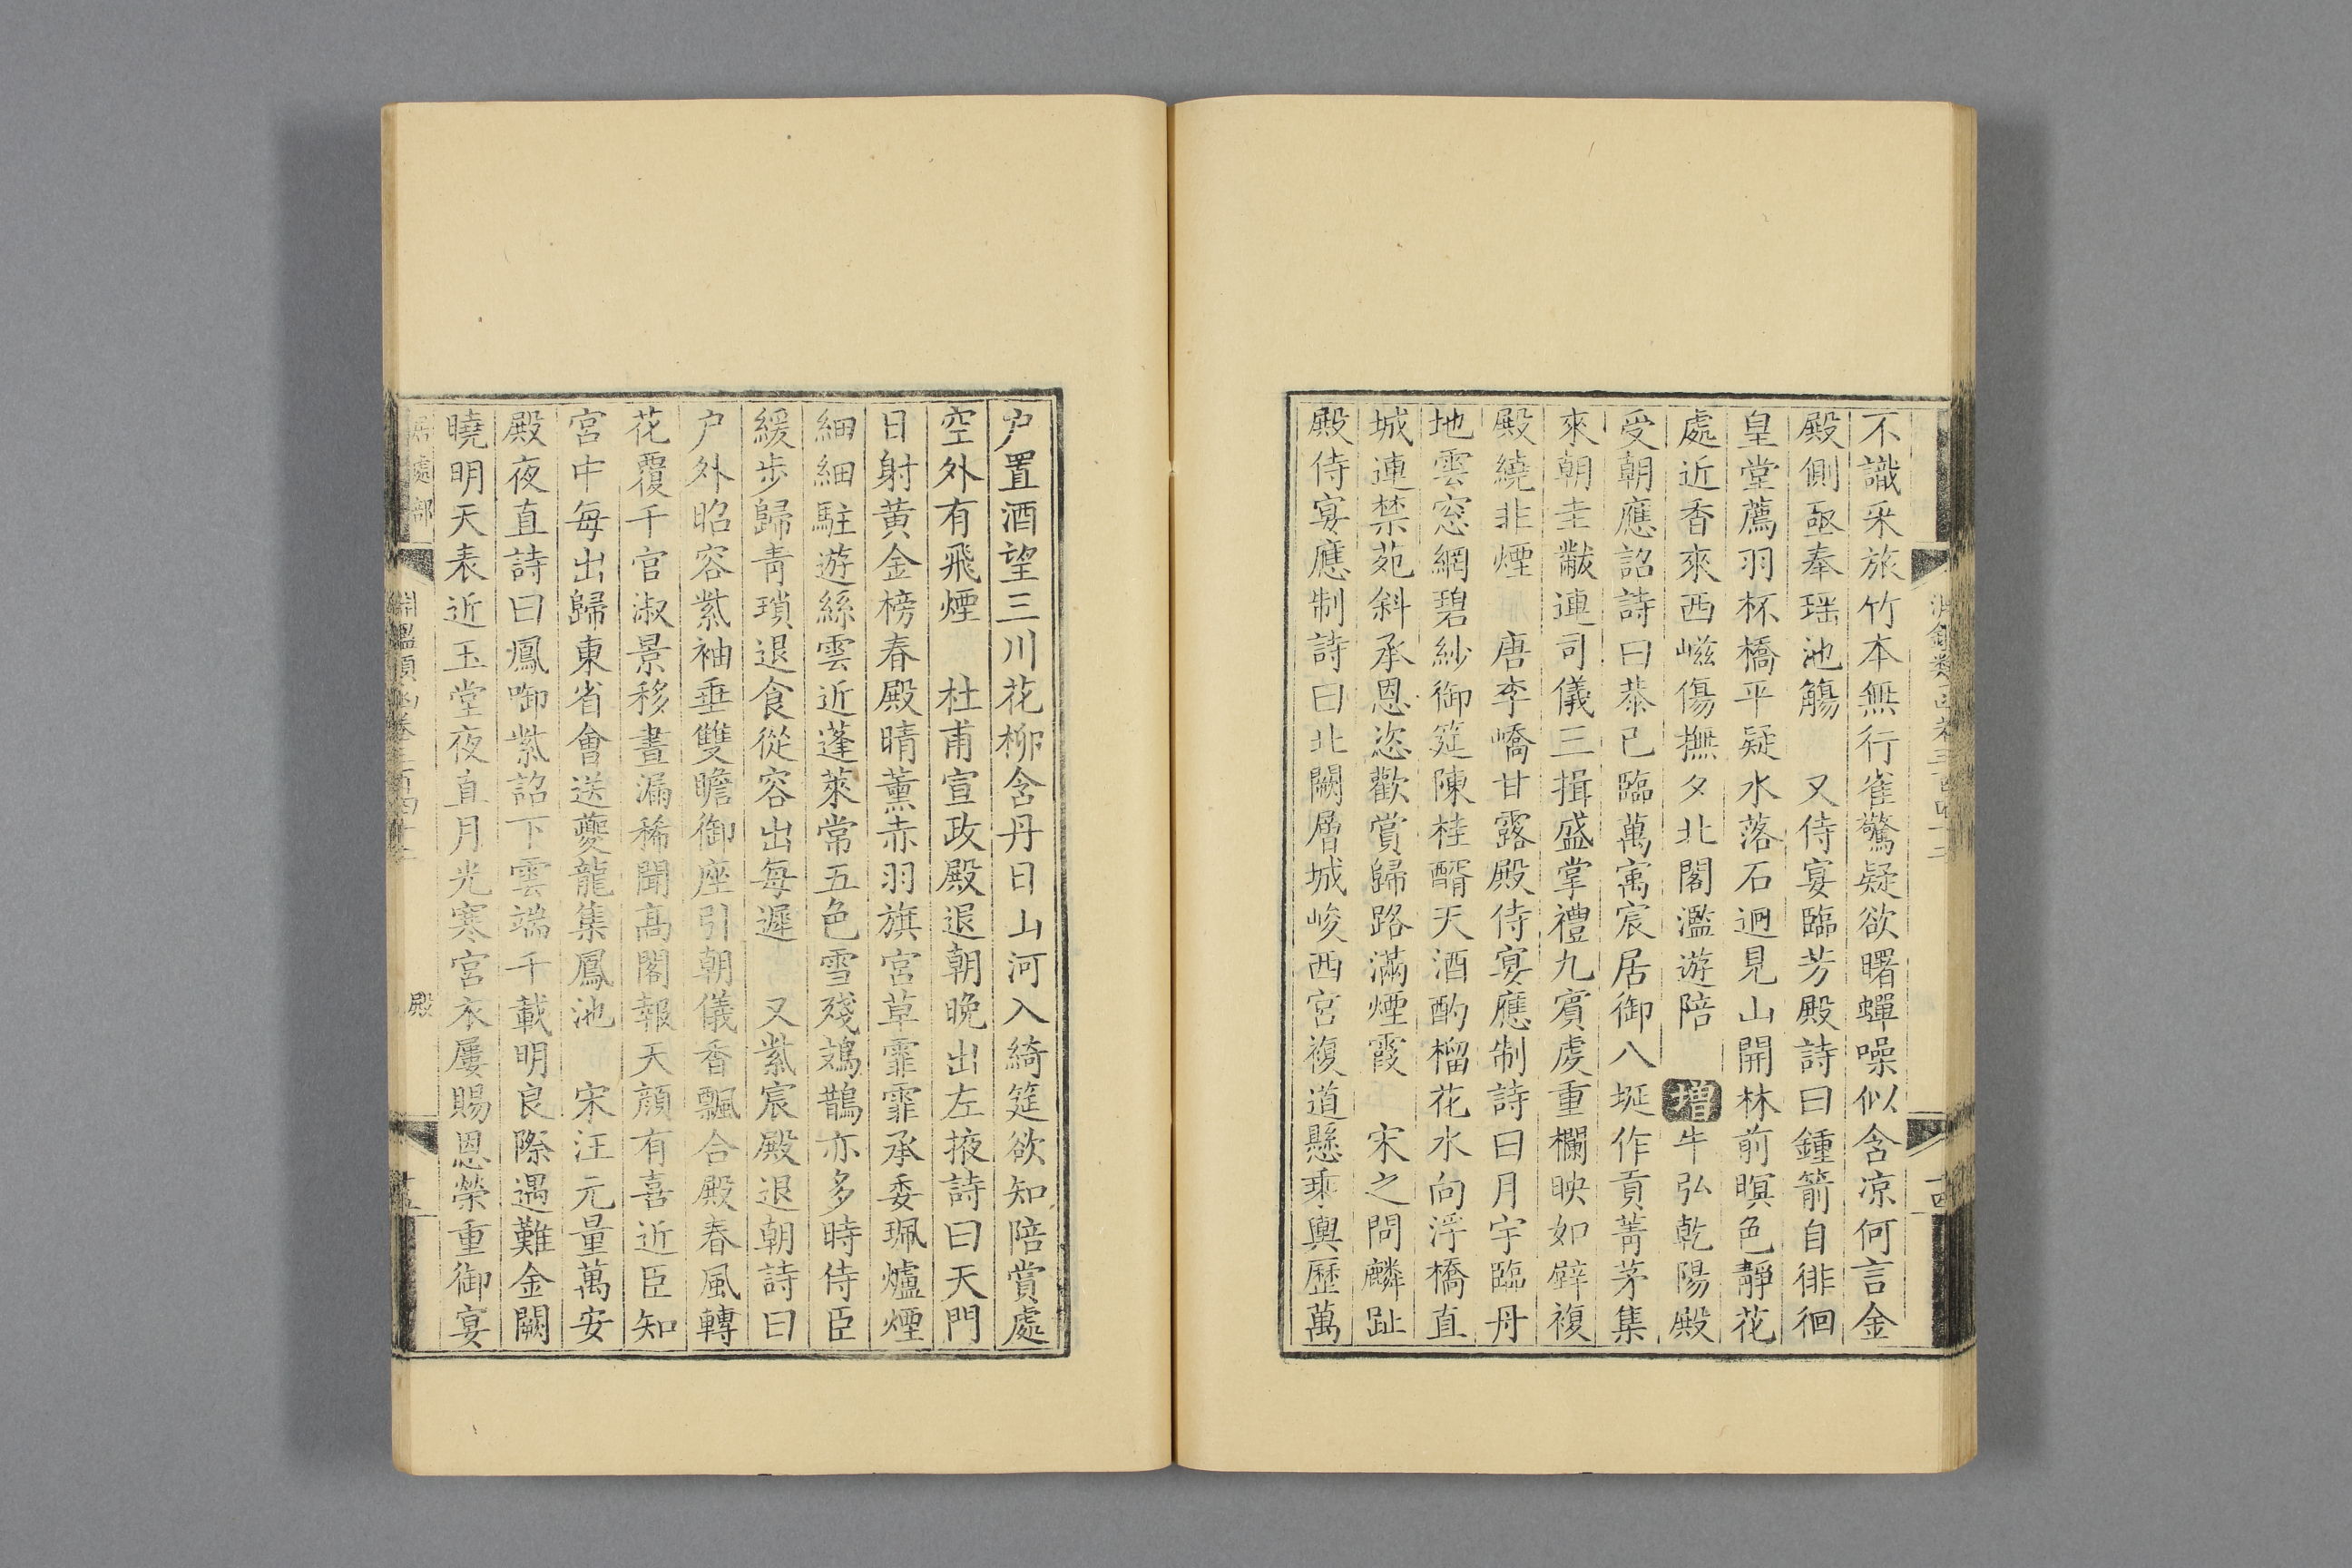 不識采旅竹本無行雀驚疑欲曙蟬噪似含凉何言金
殿側亟奉瑶池觴　又侍宴臨芳殿詩曰鍾箭自徘徊
皇堂薦羽杯橋平疑水落石迥見山開林前暝色靜花
處近香來西嵫傷撫夕北閣濫遊陪　增牛弘乾陽殿
受朝應詔詩曰恭己臨萬寓宸居御八埏作貢菁茅集
來朝圭黻連司儀三揖盛掌禮九賓虔重欄映如璧複
殿繞非煙　唐李嶠甘露殿侍宴應制詩曰月宇臨丹
地雲窓網碧紗御筵陳桂醑天酒酌榴花水向浮橋直
城連禁苑斜承恩恣歡賞歸路滿煙霞　宋之問麟趾
殿侍宴應制詩曰北闕層城峻西宮複道懸乘輿歷萬
户置酒望三川花柳含丹日山河入綺筵欲知陪賞處
空外有飛煙　杜甫宣政殿退朝晚出左掖詩曰天門
日射黄金榜春殿晴薰赤羽旗宮草霏霏承委珮爐煙
細細駐遊絲雲近蓬萊常五色雪殘鳷鵲亦多時侍臣
緩步歸青瑣退食從容出每遲　又紫宸殿退朝詩曰
户外昭容紫袖垂雙瞻御座引朝儀香飄合殿春風轉
花覆千官淑景移晝漏稀聞高閣報天顔有喜近臣知
宮中每出歸東省會送夔龍集鳳池　宋汪元量萬安
殿夜直詩曰鳳啣紫詔下雲端千載明良際遇難金闕
曉明天表近玉堂夜直月光寒宮衣屢賜恩榮重御宴
居處部　淵鑑類函卷三百四十二　殿　十五